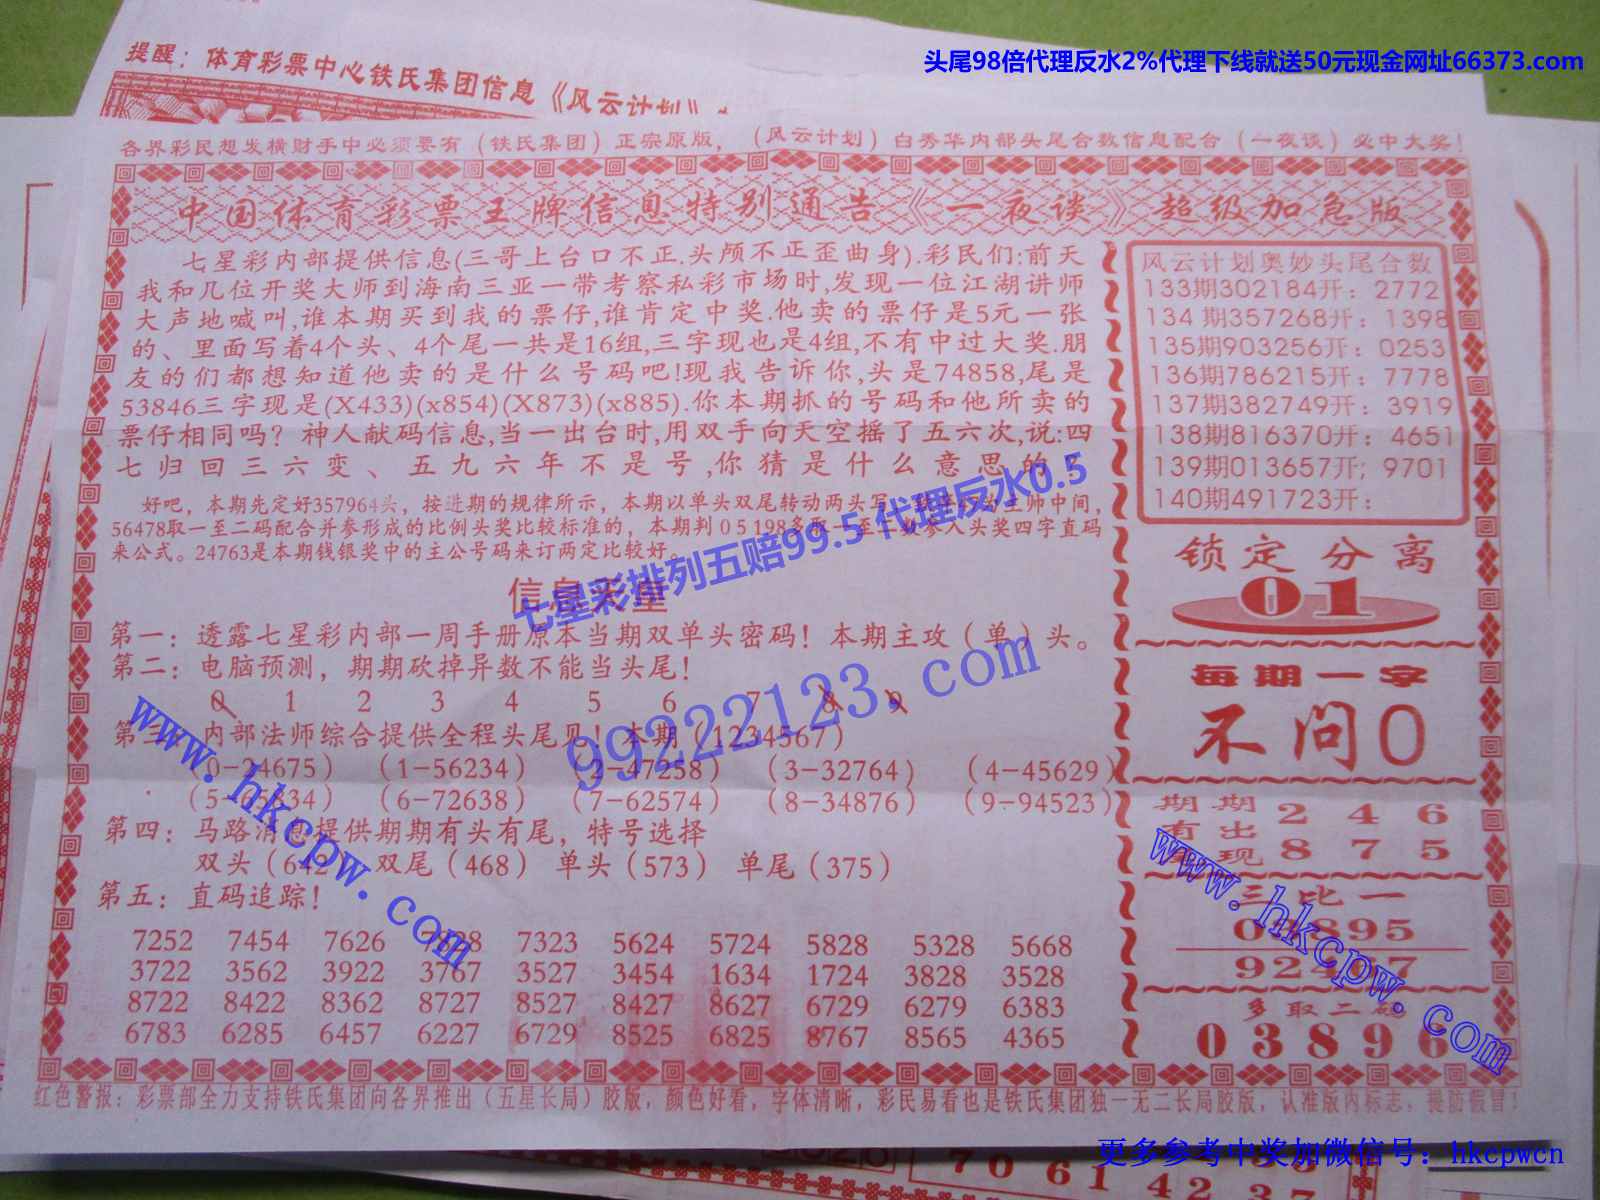 头尾98倍代理反水2%代理下线就送50元现金网址66373.com
提醒：体育彩票中心铁氏集团信息《风云计划》
各界彩民想发横财手中必须要有（铁氏集团）正宗原版，（风云计划）白秀华内部头尾合数信息配合（一夜谈）必中大奖！
中国体育彩票王牌信息特别通告《一夜谈》超级加急版
七星彩内部提供信息(三哥上台口不正.头颅不正歪曲身).彩民们:前天
我和几位开奖大师到海南三亚一带考察私彩市场时,发现一位江湖讲师
大声地喊叫,谁本期买到我的票仔,谁肯定中奖.他卖的票仔是5元一张
的、里面写着4个头、4个尾一共是16组,三字现也是4组,不有中过大奖.朋
友的们都想知道他卖的是什么号码吧!现我告诉你,头是74858,尾是
53846三字现是(X433)(x854)(X873)(x885).你本期抓的号码和他所卖的
票仔相同吗？神人献码信息,当一出台时,用双手向天空摇了五六次,说:四
七归回三六变、五九六年不是号,你猜是什么意思的？
好吧，本期先定好357964头，按进期的规律所示，本期以单头双尾转动两头写 主帅中间，
56478取一至二码配合并参形成的比例头奖比较标准的，本期判05198多取一至二数参入头奖四字直码
来公式。24763是本期钱银奖中的主公号码来订两定比较好。
七星彩排列五赔99.5 代理反水0.5
信息彩皇
第一：透露七星彩内部一周手册原本当期双单头密码！本期主攻（单）头。
第二：电脑预测，期期砍掉异数不能当头尾！
0 1 2 3 4 5 6 7 8 9
第三：内部法师综合提供全程头尾见！本期（1234567）
（0-24675）（1-56234）（2-47258）（3-32764）（4-45629）
（5- 334）（6-72638）（7-62574）（8-34876）（9-94523）
第四：马路消息提供期期有头有尾，特号选择
双头（642 双尾（468） 单头（573） 单尾（375）
第五：直码追踪！
7252 7454 7626 7323 5624 5724 5828 5328 5668
3722 3562 3922 3767 3527 3454 1634 1724 3828 3528
8722 8422 8362 8727 8527 8427 8627 6729 6279 6383
6783 6285 6457 6227 6729 8525 6825 8767 8565 4365
风云计划奥妙头尾合数
133期302184开：2772
134期357268开：1398
135期903256开：0253
136期786215开：7778
137期382749开：3919
138期816370开：4651
139期013657开;9701
140期491723开：
锁定分离
01
每期一字
不问0
期期 2 4 6
有出
现 8 7 5
三比一
0 895
924 7
多取二码
03896
99222123.com
www.hkcpw.com
www.hkcpw.com
红色警报：彩票部全力支持铁氏集团向各界推出（五星长局）胶版，颜色好看，字体清晰，彩民易看也是铁氏集团独一无二长局胶版，认准版内标志，提防假冒！
更多参考中奖加微信号：hkcpwcn
70614237